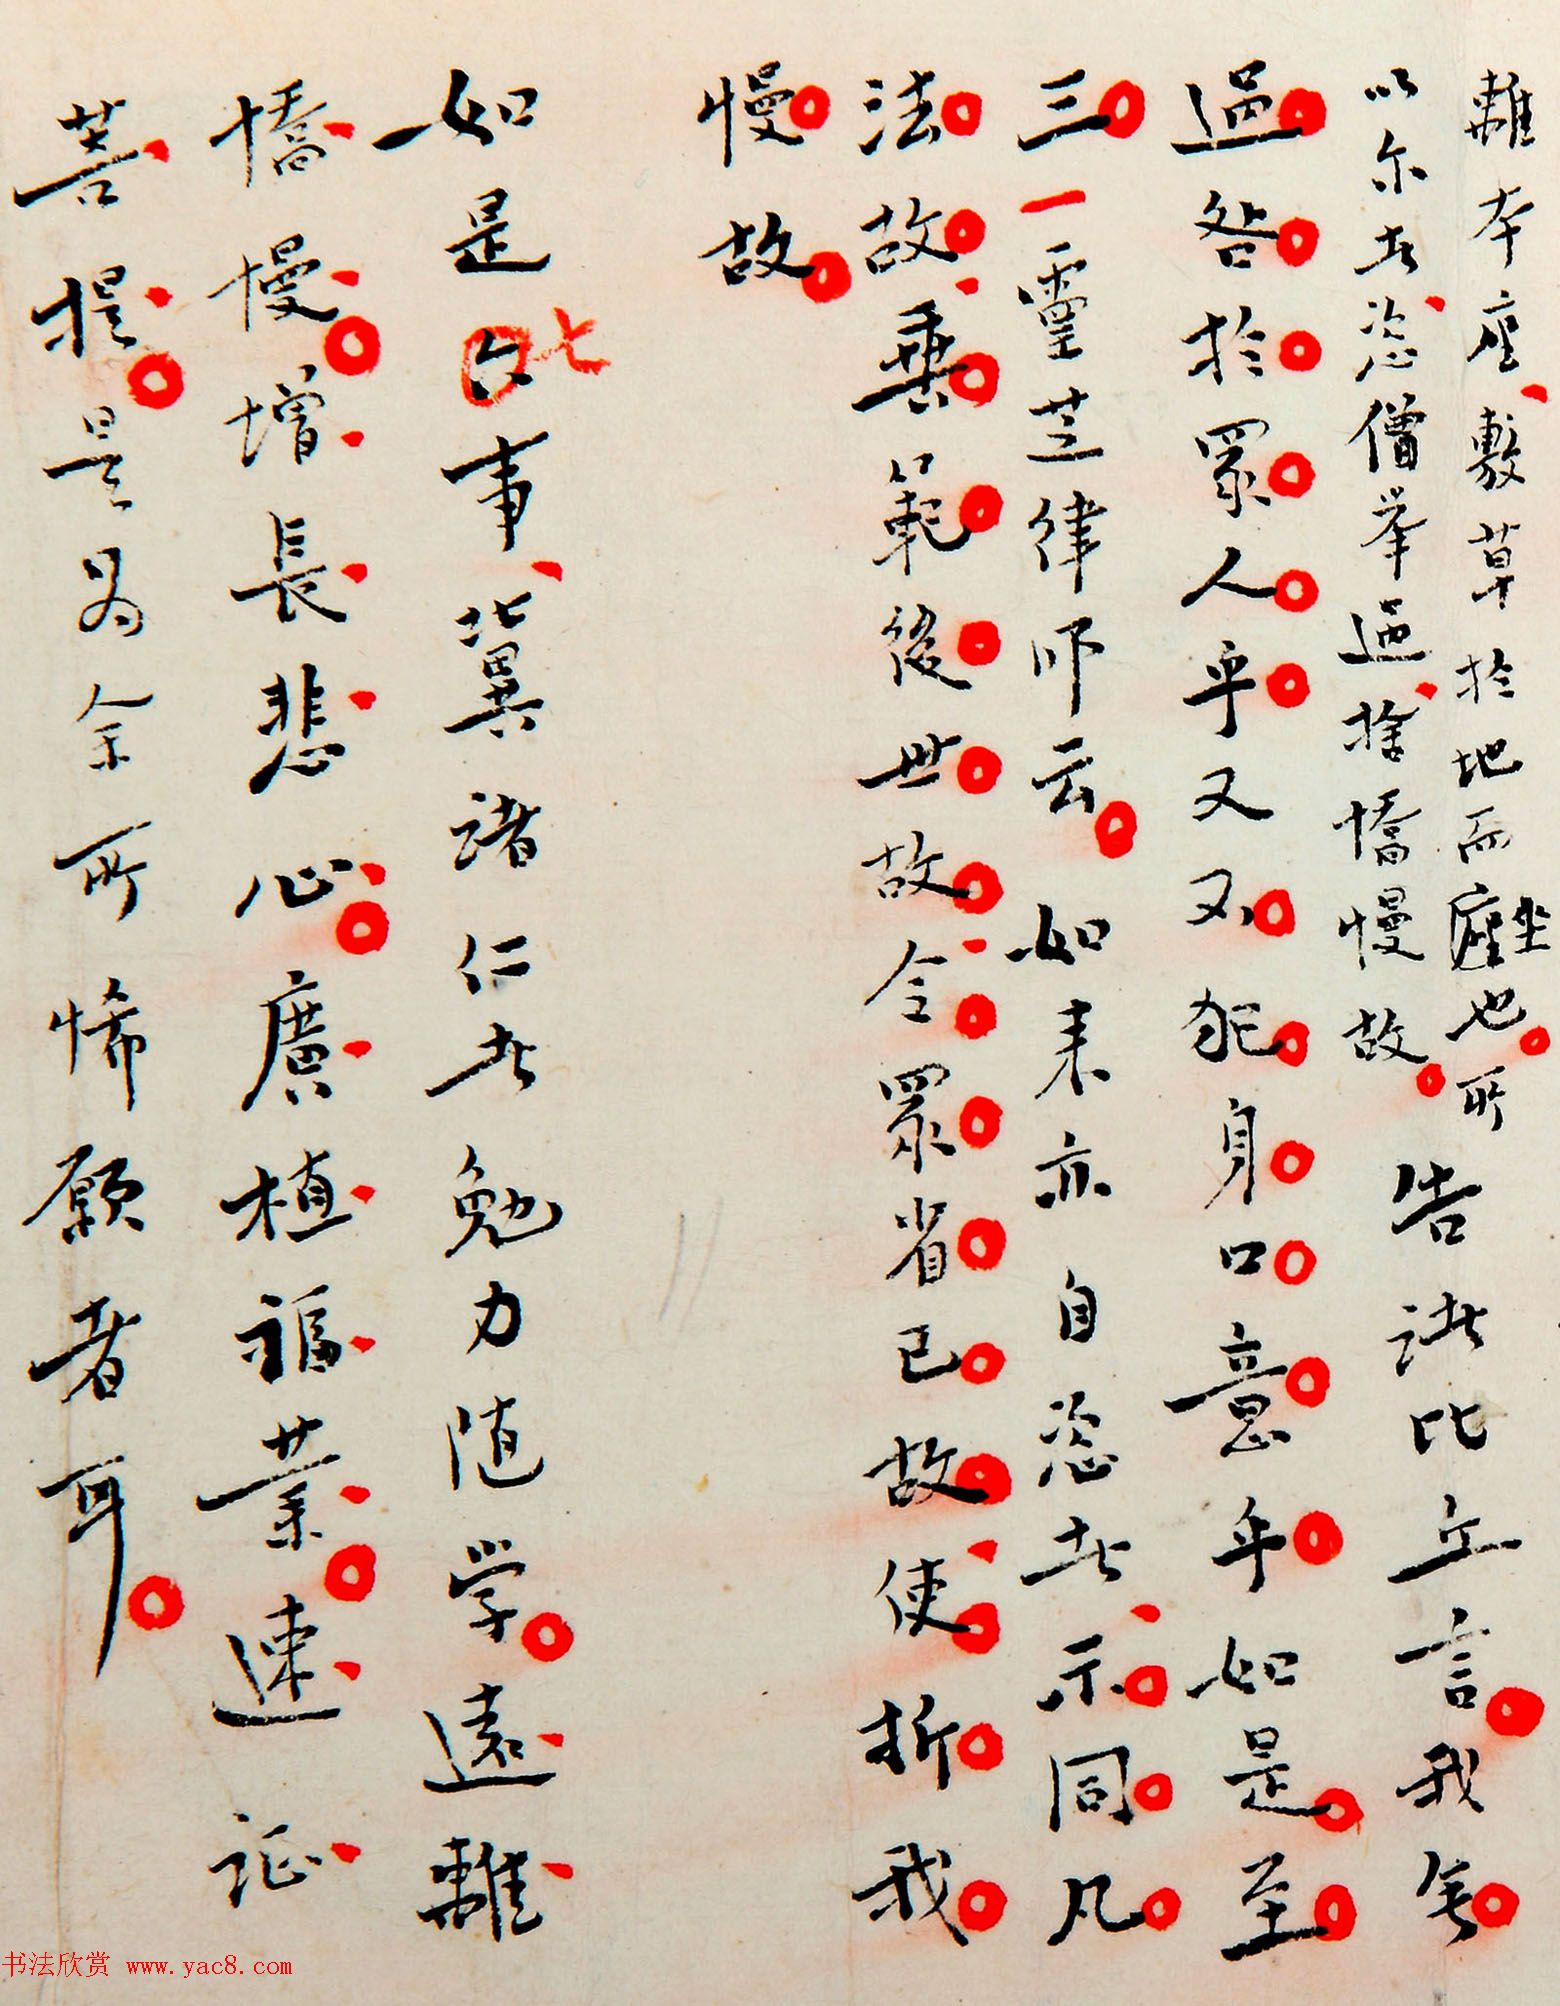 離本座、敷草於地而座坐也。所
以尔者、恣僧举過、捨憍慢故。告諸比丘言。我無
過咎於眾人乎又不犯身口意乎如是至
三一靈芝律师云。如来亦自恣者、示同凡
法故、垂範後世故、令眾省己故、使折我
慢故。
如是六七事、冀諸仁者勉力随学。遠離
憍慢。增長悲心。廣植福業。速証
菩提。是为余所悕願者耳。
书法欣赏 www.yac8.com